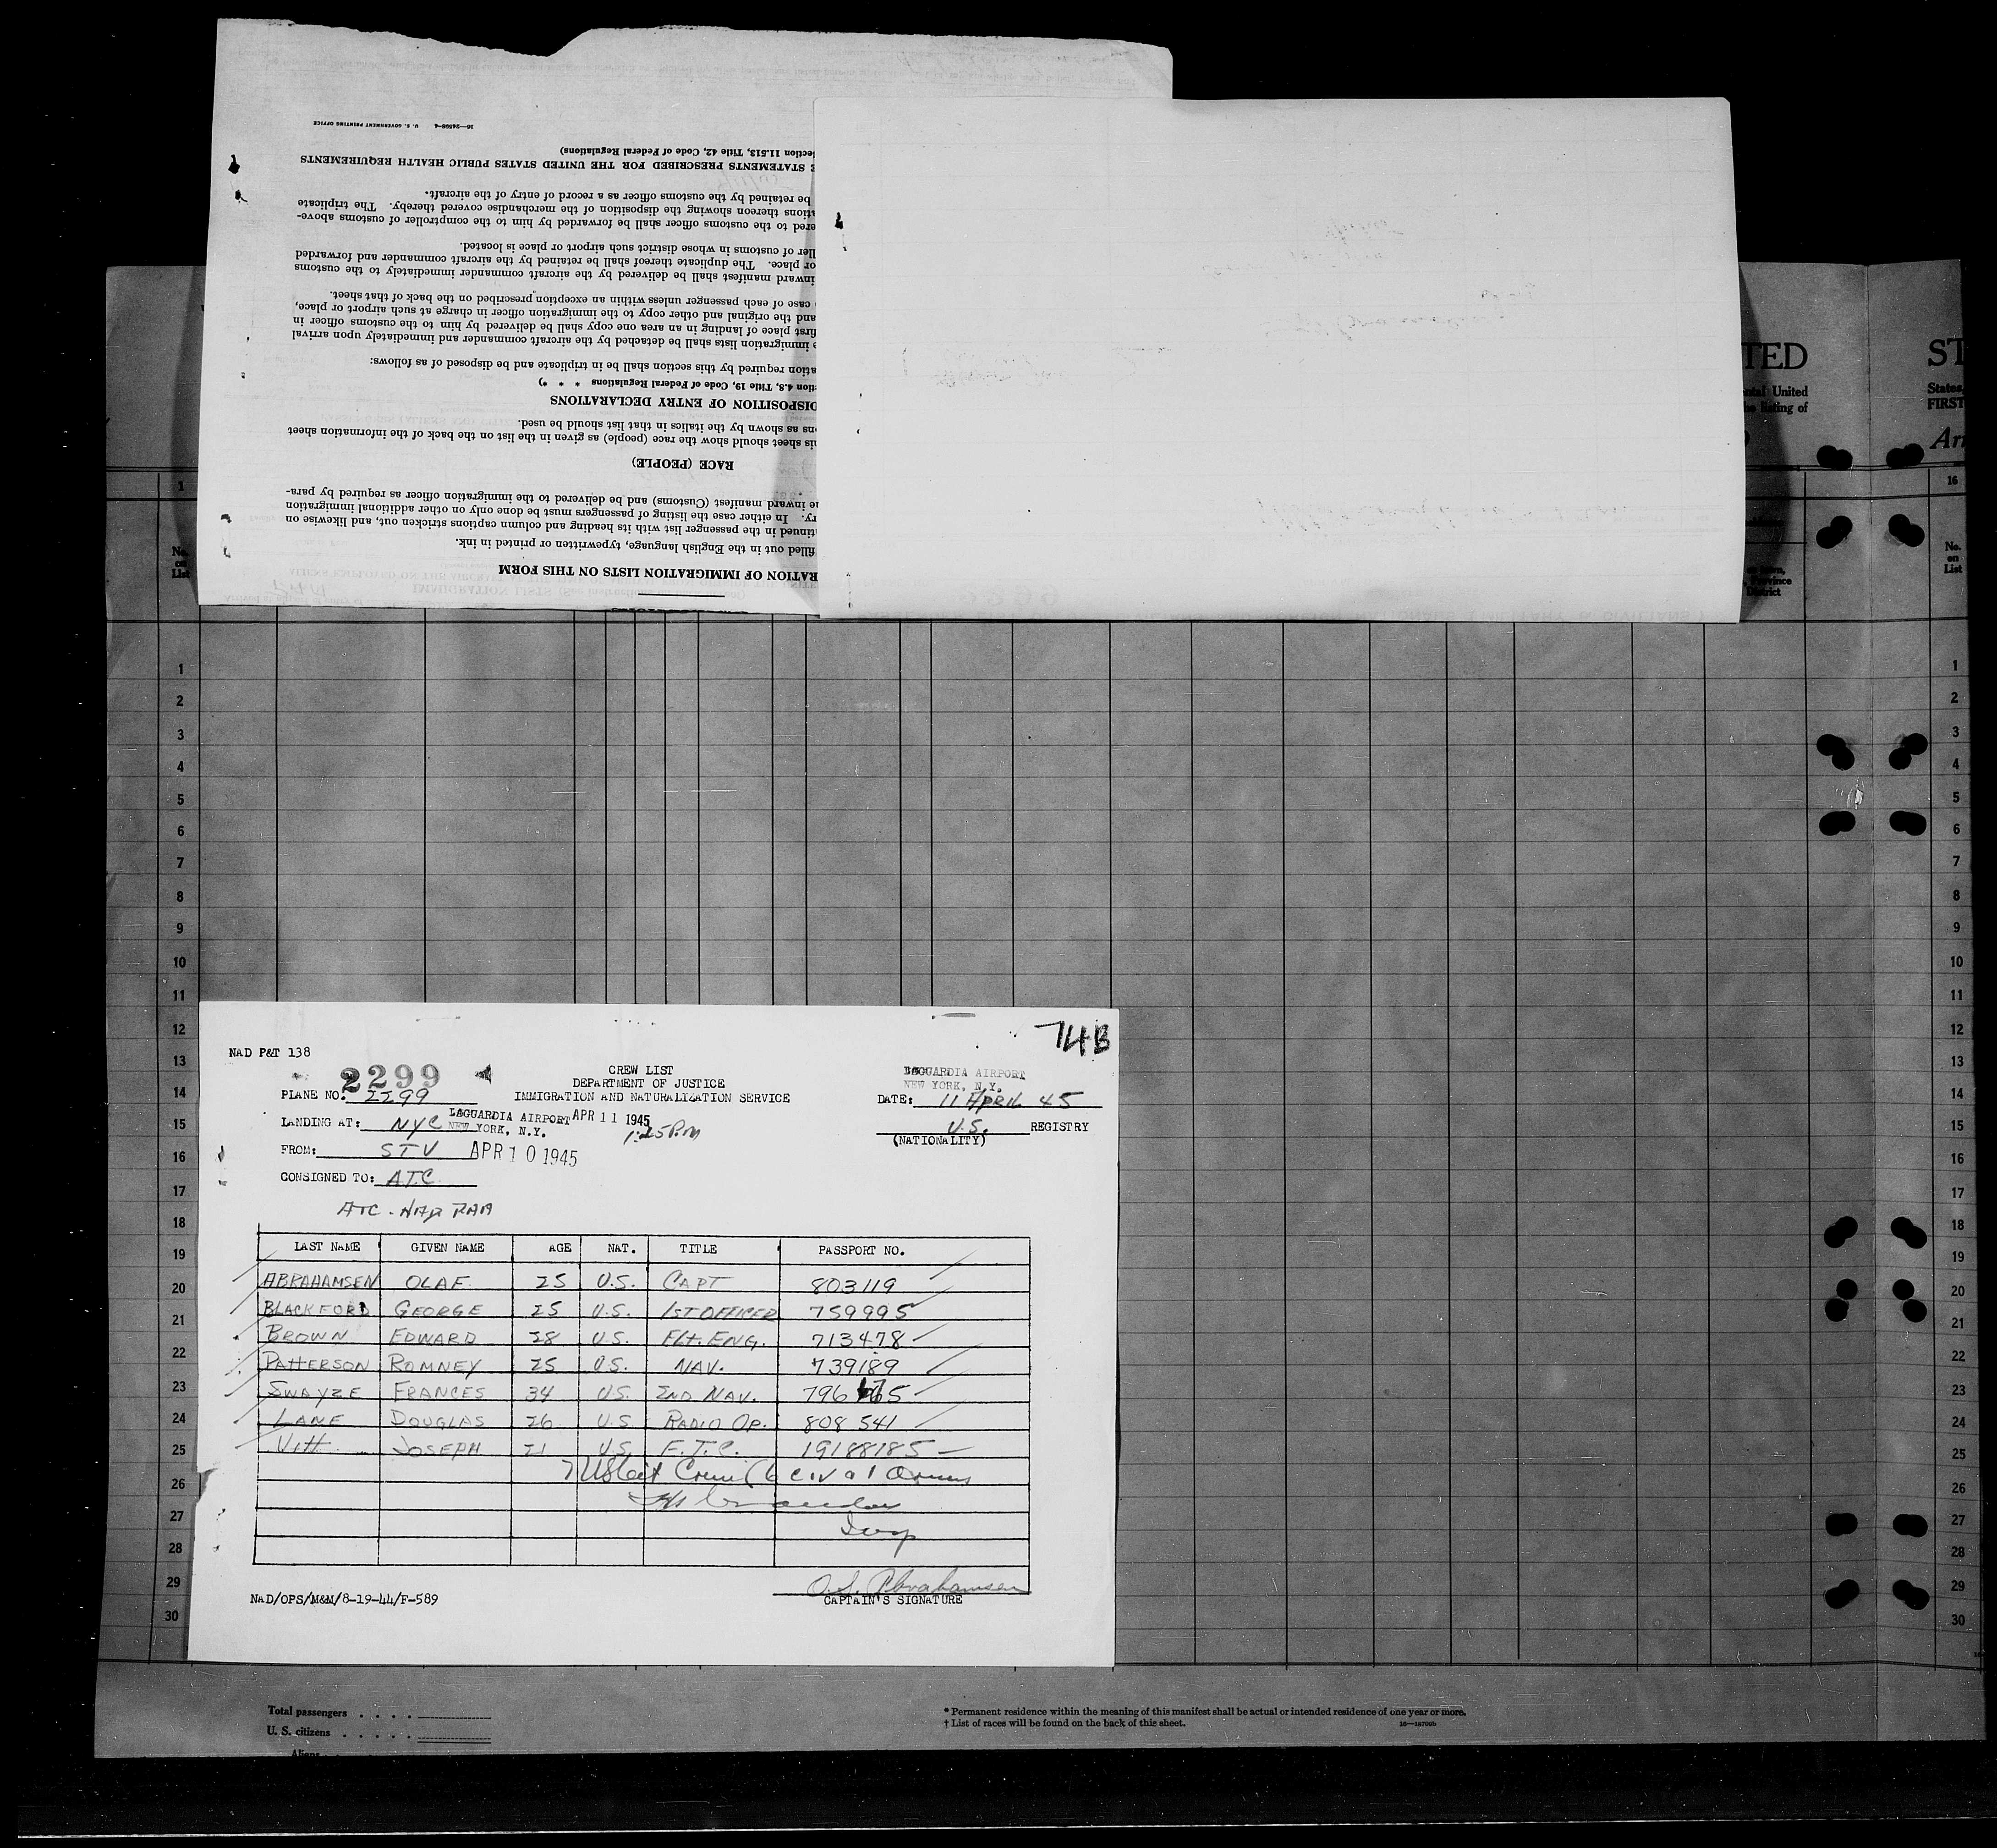 16—24598-4 U. S. GOVERNMENT PRINTING OFFICE
ction 11.513, Title 42, Code of Federal Regulations)
E STATEMENTS PRESCRIBED FOR THE UNITED STATES PUBLIC HEALTH REQUIREMENTS
be retained by the customs officer as a record of entry of the aircraft.
ations thereon showing the disposition of the merchandise covered thereby. The triplicate
ered to the customs officer shall be forwarded by him to the comptroller of customs above-
ller of customs in whose district such airport or place is located.
or place. The duplicate thereof shall be retained by the aircraft commander and forwarded
inward manifest shall be delivered by the aircraft commander immediately to the customs
case of each passenger unless within an exception prescribed on the back of that sheet.
and the original and other copy to the immigration officer in charge at such airport or place,
first place of landing in an area one copy shall be delivered by him to the customs officer in
e immigration lists shall be detached by the aircraft commander and immediately upon arrival
ation required by this section shall be in triplicate and be disposed of as follows:
ction 4.8, Title 19, Code of Federal Regulations * * *)
DISPOSITION OF ENTRY DECLARATIONS
ons as shown by the italics in that list should be used.
is sheet should show the race (people) as given in the list on the back of the information sheet
RACE (PEOPLE)
e inward manifest (Customs) and be delivered to the immigration officer as required by para-
ry. In either case the listing of passengers must be done only on other additional immigration
tinued in the passenger list with its heading and column captions stricken out, and likewise on
filled out in the English language, typewritten or printed in ink.
RATION OF IMMIGRATION LISTS ON THIS FORM
TED ST
ntal United States
he listing of FIRST
Arr
1 16
No. on List
Province
District
No. on List
1 1
2 2
3 3
4 4
5 5
6 6
7 7
8 8
9 9
10 10
11 11
12 12
13 13
14 14
15 15
16 16
17 17
18 18
19 19
20 20
21 21
22 22
23 23
24 24
25 25
26 26
27 27
28 28
29 29
30 30
74B
NAD P&T 138
2299
CREW LIST
DEPARTMENT OF JUSTICE
IMMIGRATION AND NATURALIZATION SERVICE
LAGUARDIA AIRPORT
NEW YORK, N.Y.
PLANE NO. 2299
DATE: 11 APRIL 45
LANDING AT: NYC LAGUARDIA AIRPORT APR 11 1945
NEW YORK, N.Y. 1:25 P.M
U.S. REGISTRY
(NATIONALITY)
FROM: STV APR 10 1945
CONSIGNED TO: A.T.C.
ATC - NAD PAA
LAST NAME GIVEN NAME AGE NAT. TITLE PASSPORT NO.
ABRAHAMSEN OLAF 25 U.S. CAPT 803119
BLACKFORD GEORGE 25 U.S. 1ST OFFICER 759995
BROWN EDWARD 28 U.S. FLT. ENG. 713478
PATTERSON ROMNEY 25 U.S. NAV. 739189
SWAYZE FRANCES 34 U.S. 2ND NAV. 796 65
LANE DOUGLAS 26 U.S. RADIO OP. 808 541
Vitt JOSEPH 21 U.S. F.T.C. 19188185
7 US Cit Crew (6 civ a 1
Insp
O.S. Abrahamsen
CAPTAIN'S SIGNATURE
NAD/OPS/M&M/8-19-44/F-589
Total passengers . . . .
U. S. citizens . . . . .
Aliens
* Permanent residence within the meaning of this manifest shall be actual or intended residence of one year or more.
† List of races will be found on the back of this sheet.